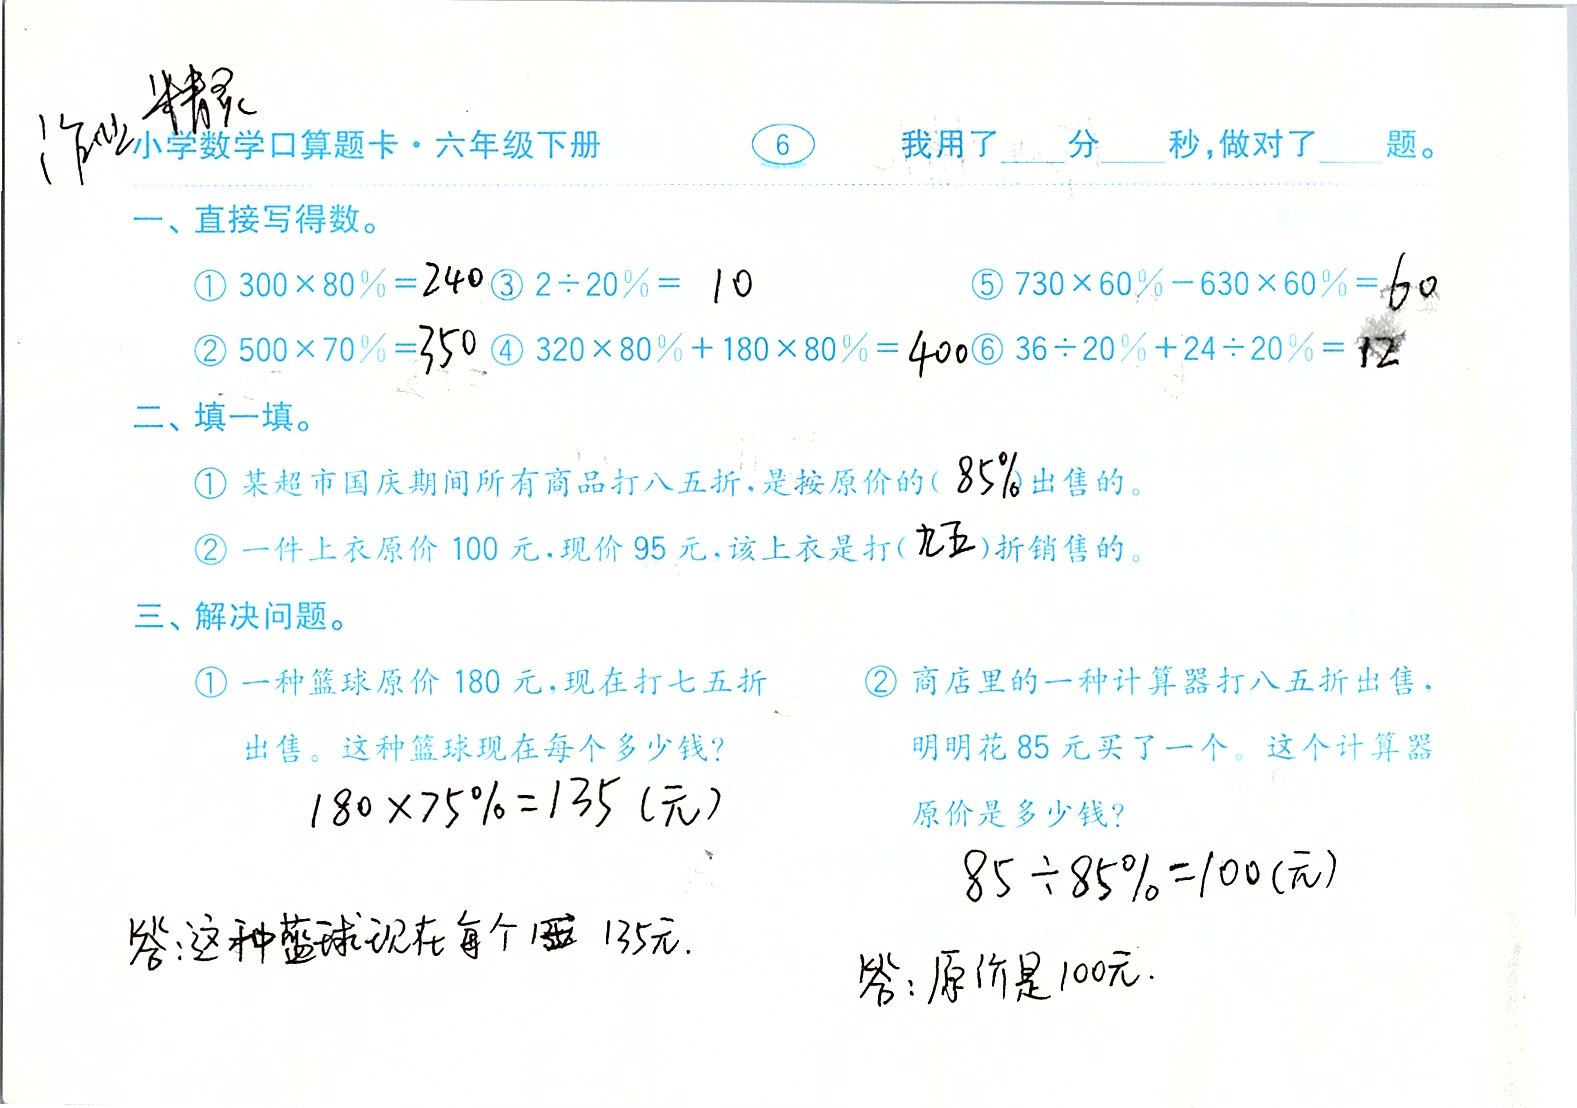 作业精灵
小学数学口算题卡·六年级下册 6 我用了____分____秒,做对了____题。
一、直接写得数。
① 300×80%=240 ③ 2÷20%= 10 ⑤ 730×60%-630×60%=60
② 500×70%=350 ④ 320×80%+180×80%=400 ⑥ 36÷20%+24÷20%=12
二、填一填。
① 某超市国庆期间所有商品打八五折,是按原价的(85%)出售的。
② 一件上衣原价 100 元,现价 95 元,该上衣是打(九五)折销售的。
三、解决问题。
① 一种篮球原价 180 元,现在打七五折
出售。这种篮球现在每个多少钱?
180×75%=135(元)
答:这种蓝球现在每个 135元.
② 商店里的一种计算器打八五折出售,
明明花 85 元买了一个。这个计算器
原价是多少钱?
85÷85%=100(元)
答:原价是100元.